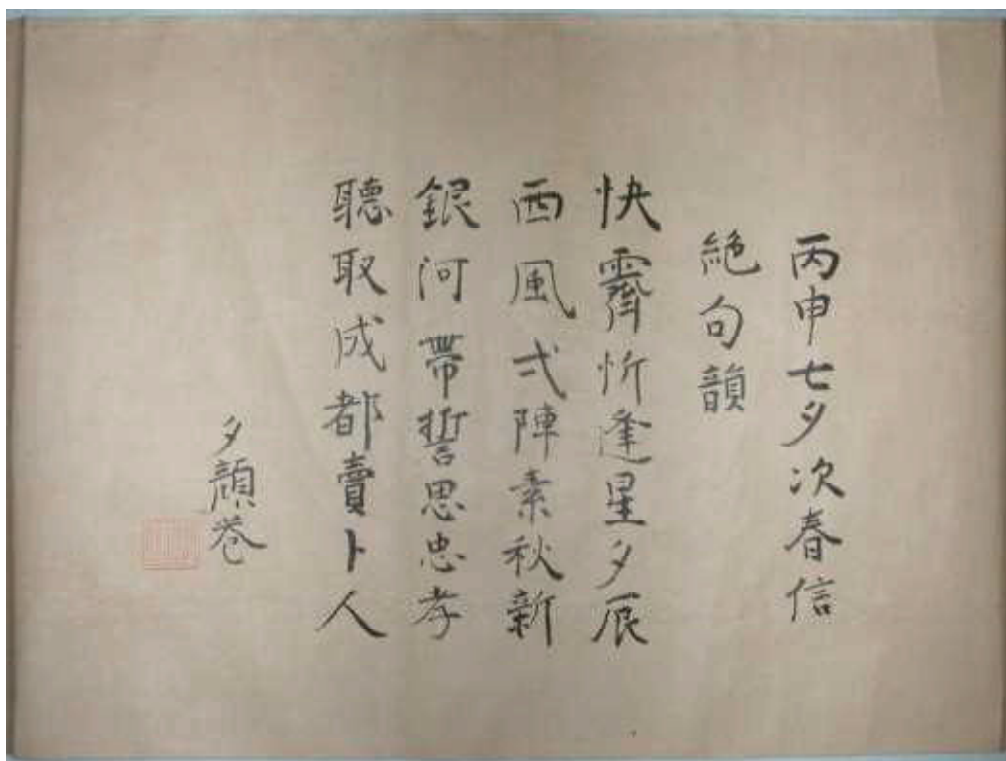 丙申七夕次春信
絶句韻
快霽忻逢星夕辰
西風弍陣素秋新
銀河帯誓思忠孝
聽取成都賣卜人
夕顔巷